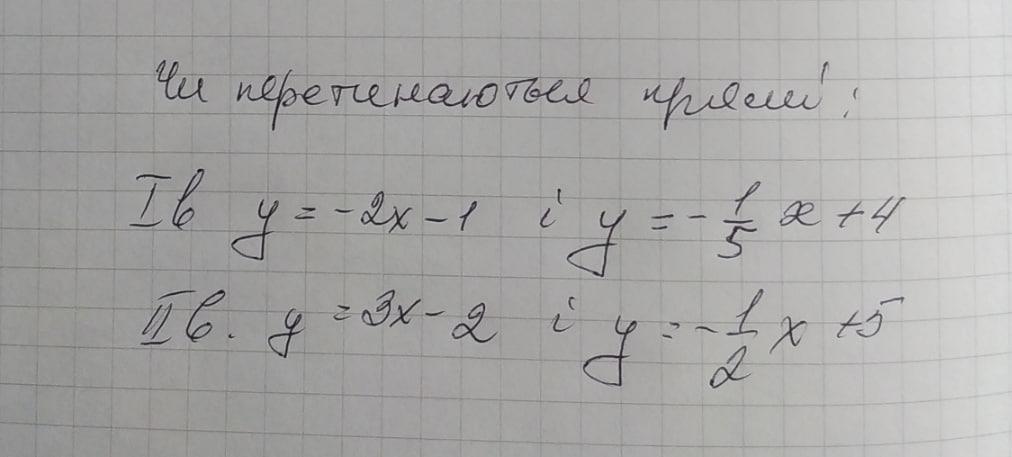 Чи перетинаються прямі:
Iв y = -2x - 1 і y = -1/5 x + 4
IIв. y = 3x - 2 і y = -1/2 x + 5